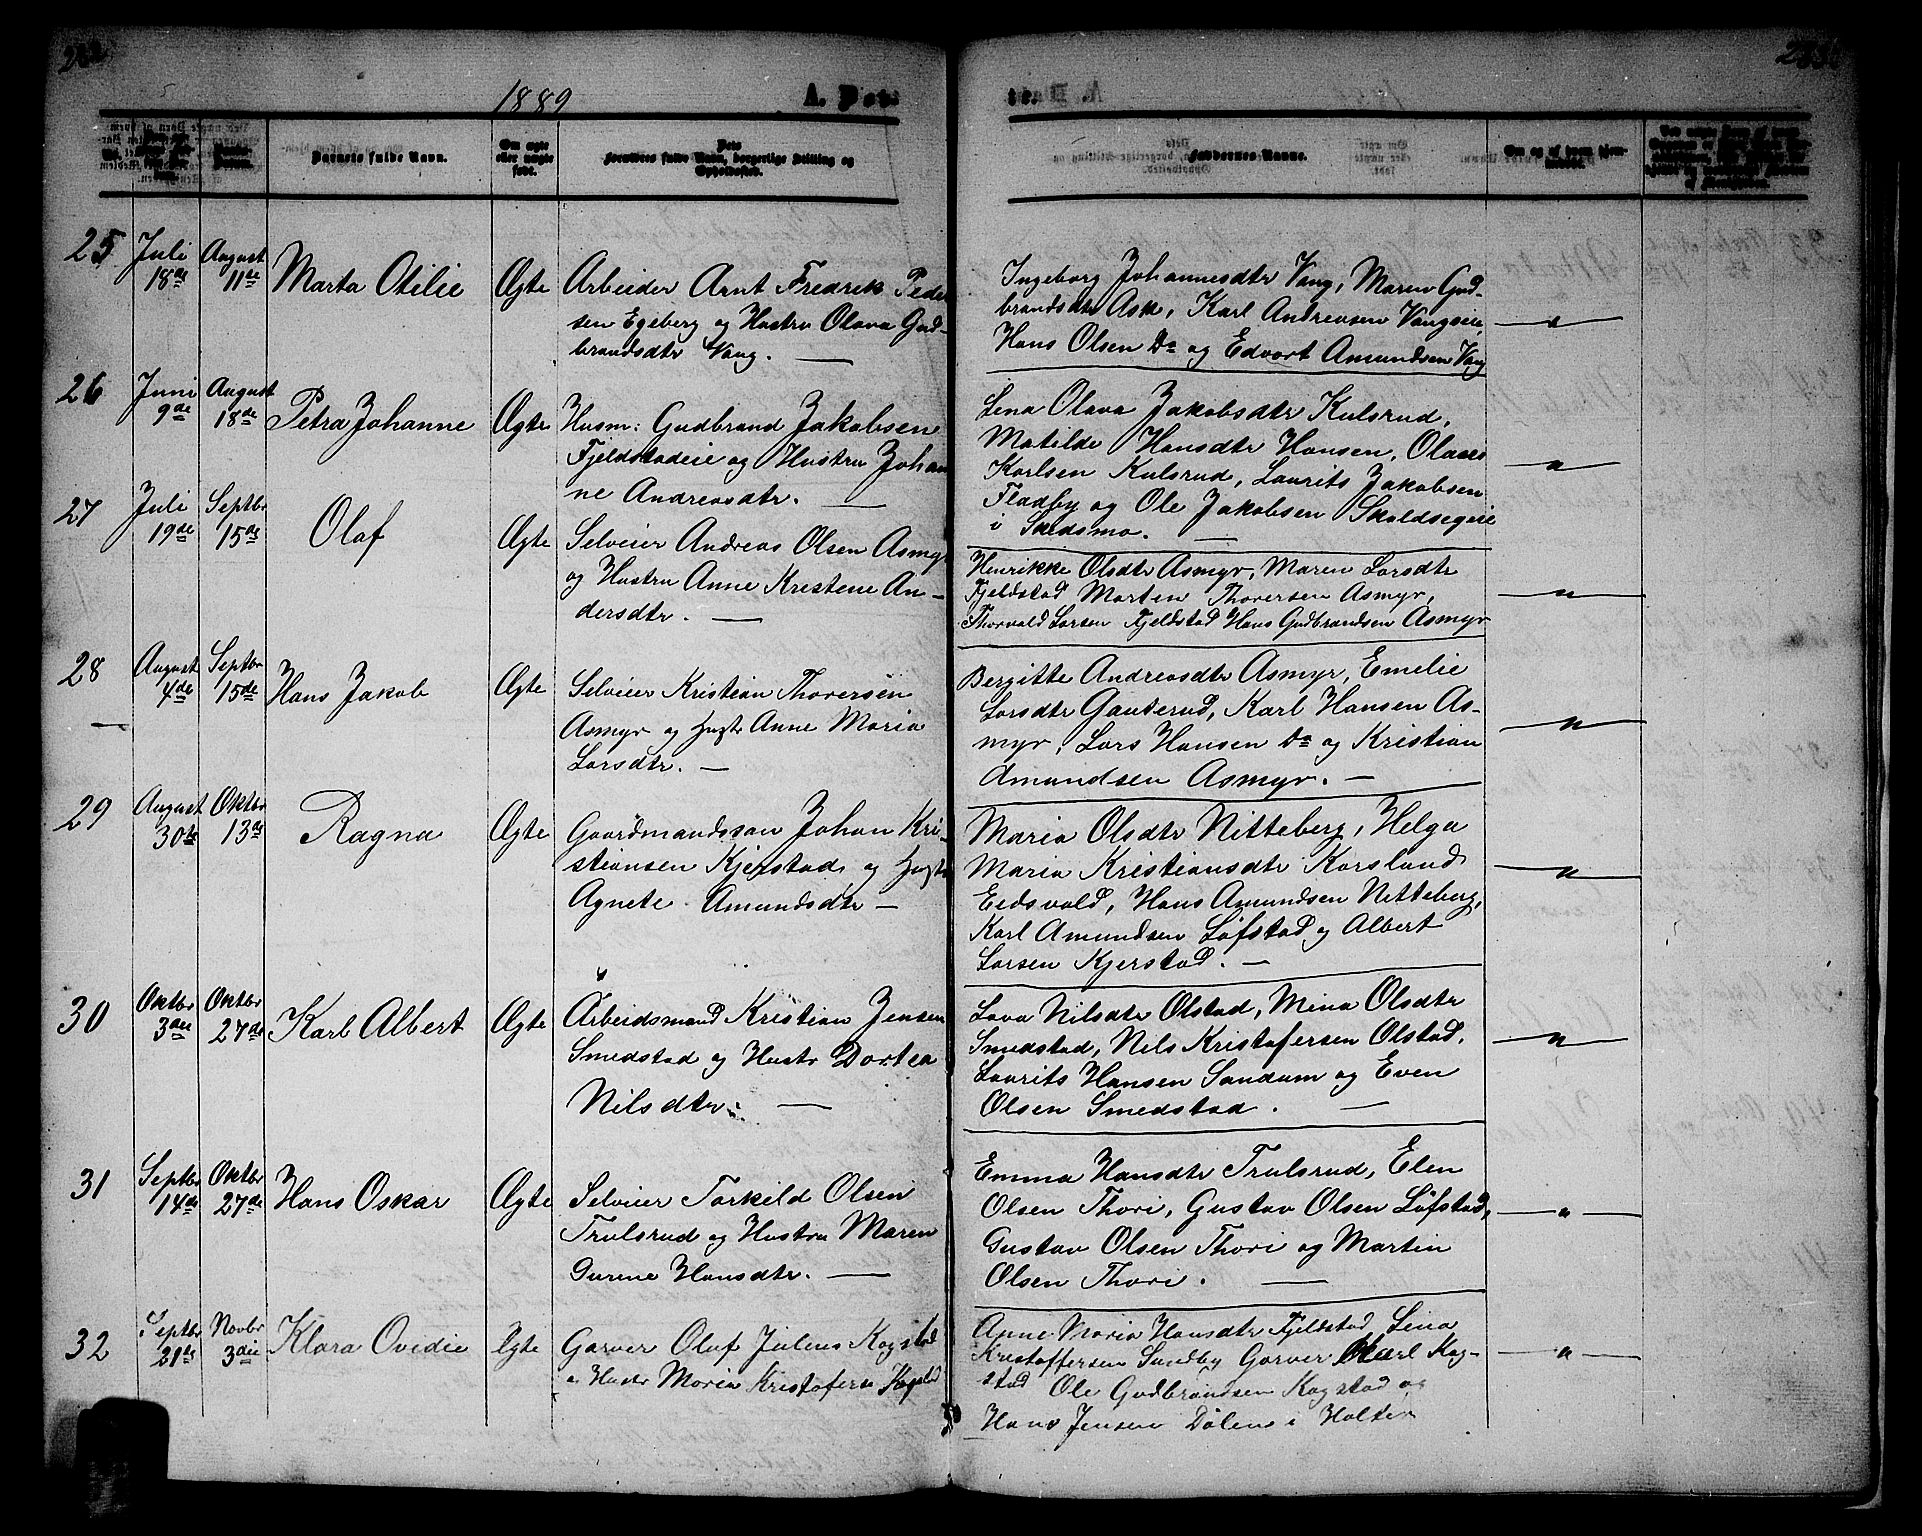 1889
A. Døb-
te.
Barnets fulde Navn.
Om ægte
eller uægte
født.
Dets
Forældres fulde Navn, borgerlige Stilling og
Opholdssted.
Faddernes Navne.
25 Juli 18de August 11te Marta Otilie Ægte Arbeider Arnt Fredrik Peder
sen Egeberg og Hustru Olava Gud-
brandsdtr Vang. —
Ingeborg Johannesdtr Vang, Maren Gud-
brandsdtr Ask, Karl Andreasen Vangseie,
Hans Olsen Do og Edvart Amundsen Vang
26 Juni 9de August 18de Petra Johanne Ægte Husm: Gudbrand Jakobsen
Fjeldstadeie og Hustru Johan
ne Andreasdtr. —
Lina Olava Jakobsdtr Kulsrud,
Matilde Hansdtr Hansen, Olaves
Karlsen Kulsrud, Laurits Jakobsen
Fladby og Ole Jakobsen Skoldsegeie
i Skedsmo. —
27 Juli 19de Septbr 15de Olaf Ægte Selveier Andreas Olsen Asmyr
og Hustru Anne Kristene An-
dersdtr. —
Henrikke Olsdtr Asmyr, Maren Larsdtr
Fjeldstad Morten Thorersen Asmyr,
Thorvald Larsen Fjeldstad Hans Gudbrandsen Asmyr
28 August 4de Septbr 15de Hans Jakob Ægte Selveier Kristian Thorersen
Asmyr og Hustr Anne Maria
Larsdtr. —
Bergitte Andreasdtr Asmyr, Emelie
Larsdtr Gauterud, Karl Hansen As-
myr, Lars Hansen Do og Kristian
Amundsen Asmyr. —
29 August 30te Oktbr 13de Ragna Ægte Gaardmandssøn Johan Kri-
stiansen Kjerstad og Hustr
Agnete Amundsdtr —
Maria Olsdtr Nitteberg, Helga
Maria Kristiansdtr Korslund
Eidsvold, Hans Amundsen Nitteberg,
Karl Amundsen Løfstad og Albert
Larsen Kjerstad. —
30 Oktbr 3die Oktbr 27de Karl Albert Ægte Arbeidsmand Kristian Jensen
Smedstad og Hustr Dortea
Nilsdtr. —
Lava Nilsdtr Olstad, Mina Olsdtr
Smedstad, Nils Kristofersen Olstad,
Laurits Hansen Sandum og Even
Olsen Smedstad. —
31 Septbr 14de Oktbr 27de Hans Oskar Ægte Selveier Torkild Olsen
Trulsrud og Hustru Maren
Gurine Hansdtr. —
Emma Hansdtr Trulsrud, Elen
Olsen Thori, Gustav Olsen Løfstad,
Gustav Olsen Thori og Martin
Olsen Thori. —
32 Septbr 21de Novbr 3die Klara Ovidie Ægte Garver Olaf Julius Kogstad
o Hustr Maria Kristofersn Kogstad
Anne Maria Hansdtr Fjeldstad, Lina
Kristoffersen Sundby Garver Karl Kog-
stad Ole Gudbrandsen Kogstad og
Hans Jensen Dølen i Holter